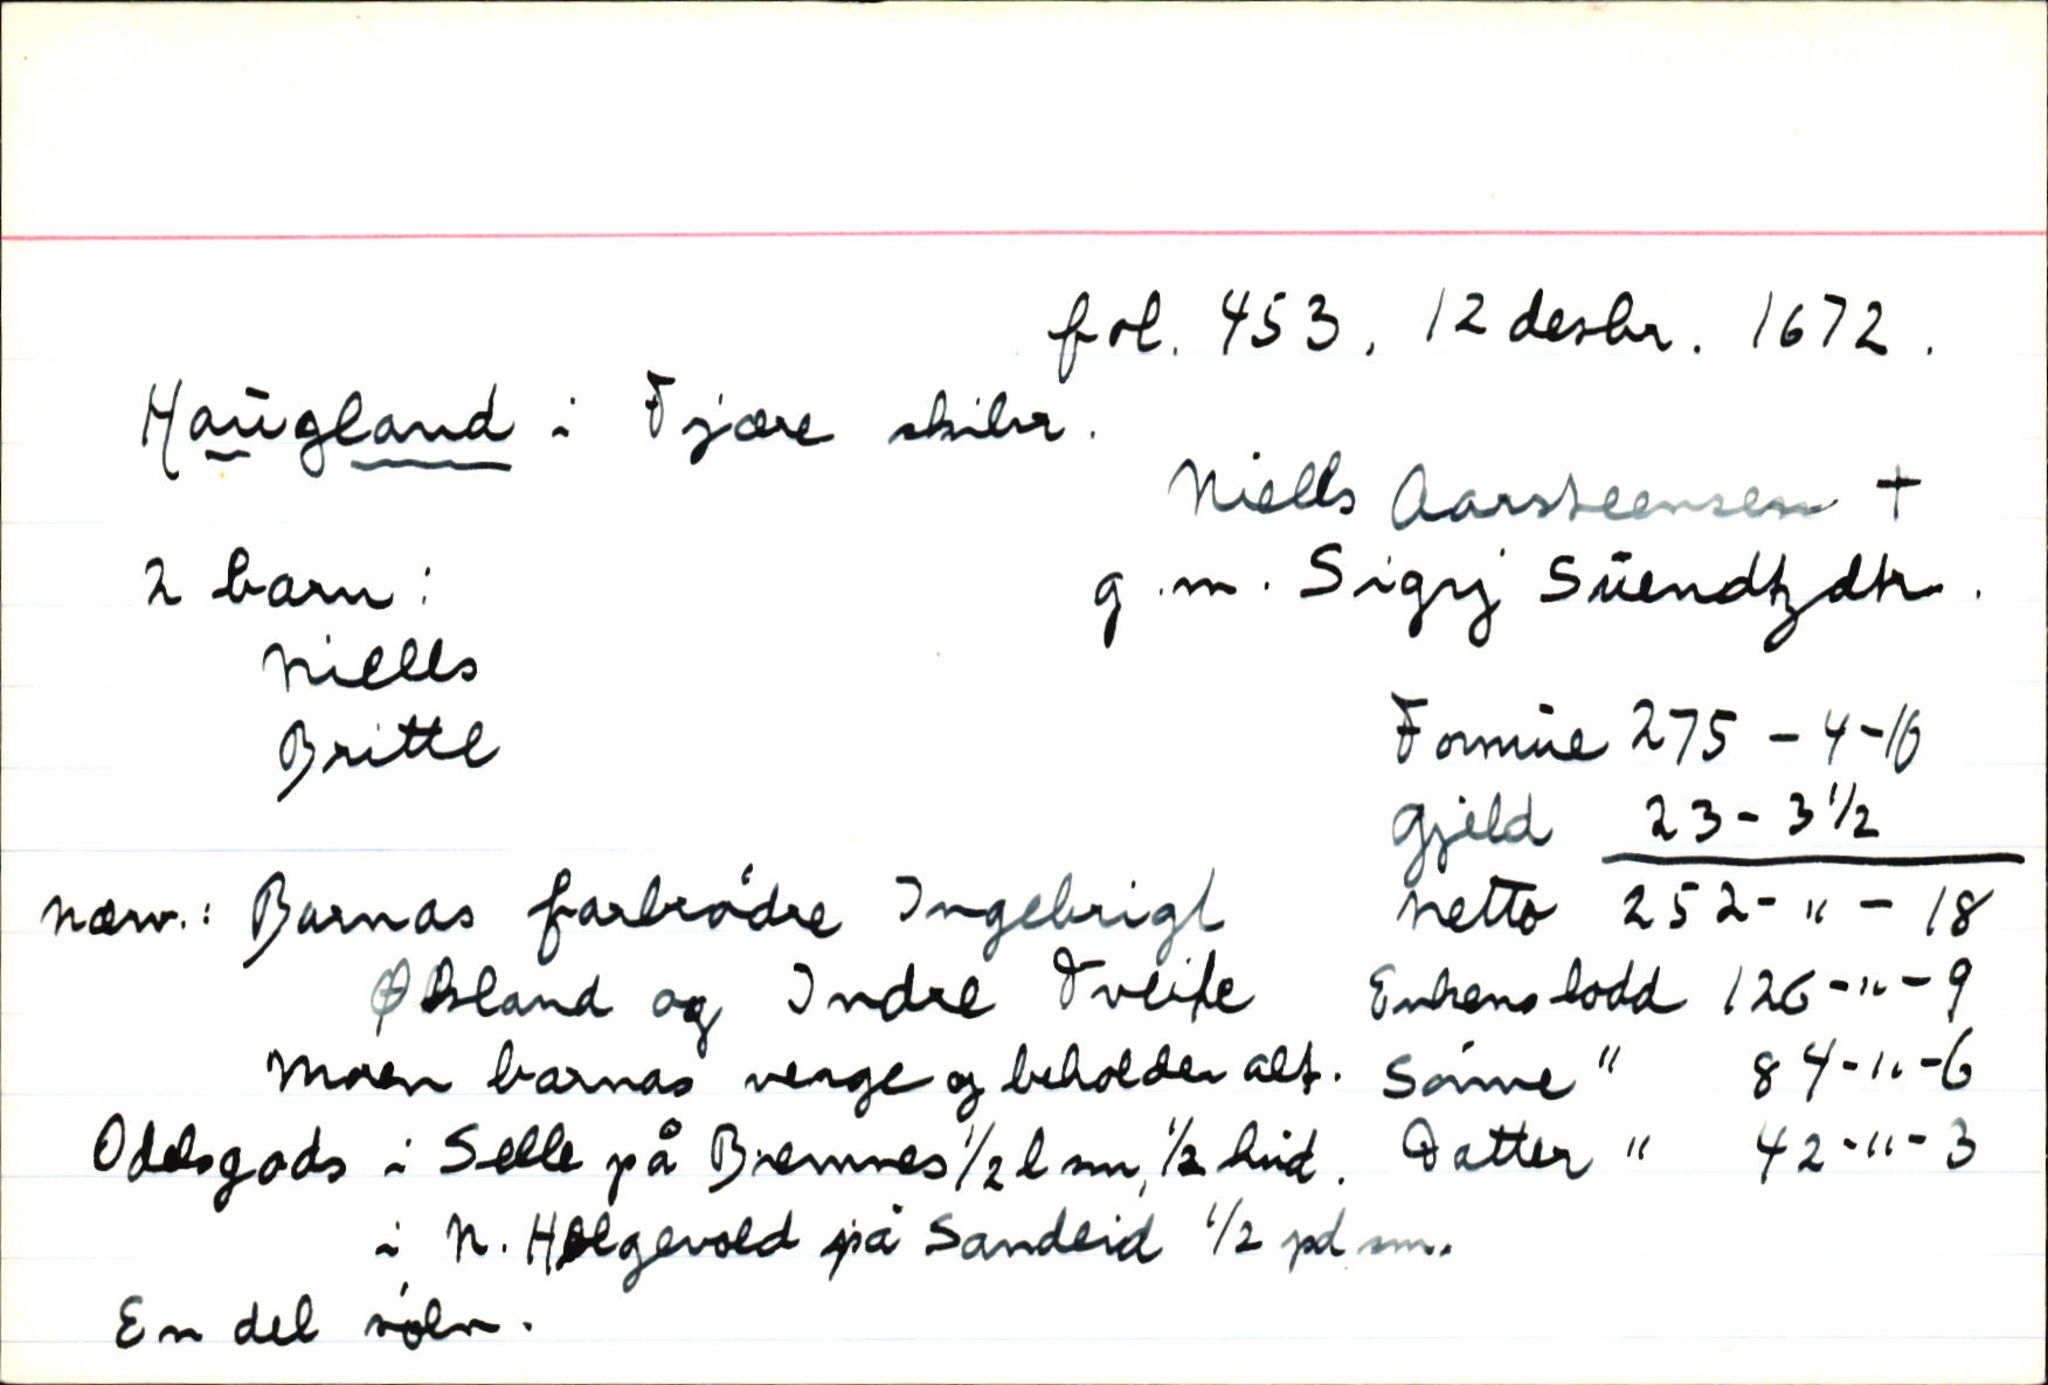 fol. 453, 12 desbr. 1672.
Haugland i Fjære skibr.
Niells Aarsteensen +
2 barn: g.m. Sigrj Suendtzdtr.
Niells
Britte
Formue 275 - 4 - 16
Gjeld 23 - 3 1/2
nærv.: Barnas farbrødre Ingebrigt netto 252 - " - 18
Øksland og Indre Tveite Enkens lodd 126 - " - 9
Moren barnas verge og beholder alt. Sønne " 84 - " - 6
Odelsgods i Selle på Bremnes 1/2 l sm, 1/2 hud. Datter " 42 - " - 3
i N. Helgevold på Sandeid 1/2 pd sm.
En del sølv.